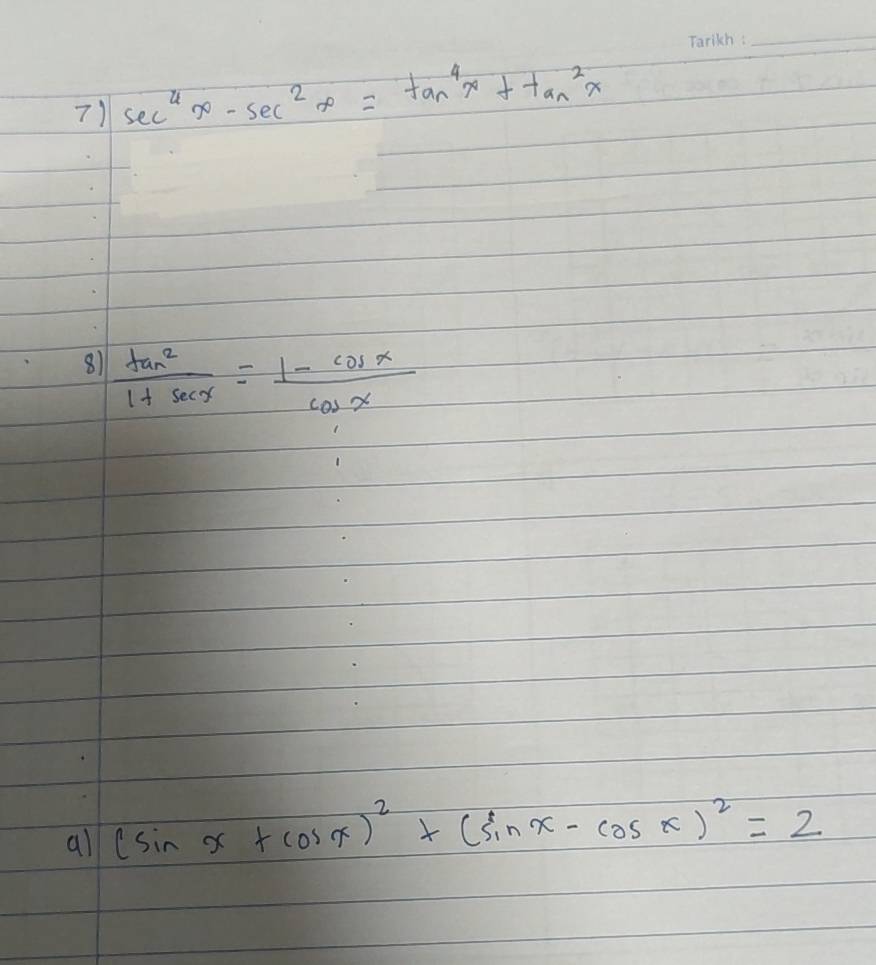 Tarikh :
7) sec⁴ x - sec² x = tan⁴x + tan²x
8) tan² / 1 + sec x = 1 - cos x / cos x
9) (sin x + cos x)² + (sin x - cos x)² = 2